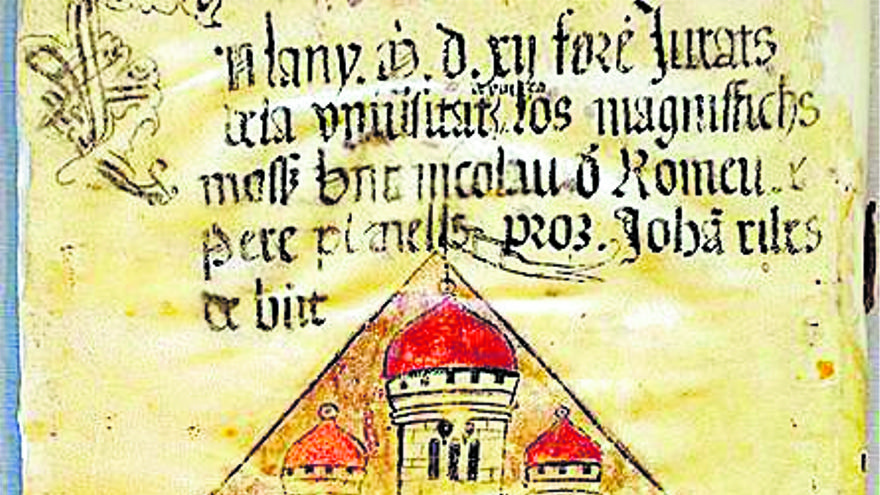 En lany. M. d. xij forē Jurats
dela vniūsitat los magniffichs
moss̄ brñt nicolau ð Romeu. e
Pere planells pro3. Johā riles
de brñt